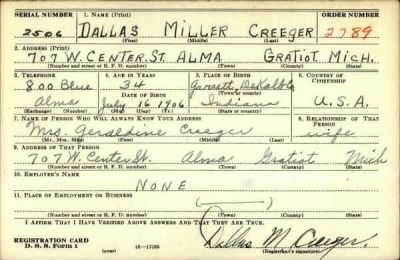 SERIAL NUMBER 1. NAME (Print) ORDER NUMBER
2506 DALLAS MILLER CREEGER 2789
(First) (Middle) (Last)
2. ADDRESS (Print)
707 W. CENTER. ST. ALMA GRATIOT MICH.
(Number and street or R. F. D. number) (Town) (County) (State)
3. TELEPHONE 4. AGE IN YEARS 5. PLACE OF BIRTH 6. COUNTRY OF CITIZENSHIP
800 Blue 34 Garrett, DeKalb Co
DATE OF BIRTH (Town or county)
Alma July 16 1906. Indiana U.S.A.
(Exchange) (Number) (Mo.) (Day) (Yr.) (State or country)
7. NAME OF PERSON WHO WILL ALWAYS KNOW YOUR ADDRESS 8. RELATIONSHIP OF THAT PERSON
Mrs. Geraldine Creeger wife
(Mr., Mrs., Miss) (First) (Middle) (Last)
9. ADDRESS OF THAT PERSON
707 W. Center St. Alma Gratiot Mich
(Number and street or R. F. D. number) (Town) (County) (State)
10. EMPLOYER'S NAME
NONE
11. PLACE OF EMPLOYMENT OR BUSINESS
(Number and street or R. F. D. number) (Town) (County) (State)
I AFFIRM THAT I HAVE VERIFIED ABOVE ANSWERS AND THAT THEY ARE TRUE.
REGISTRATION CARD
D. S. S. Form 1 (over) 16—17105 Dallas M. Creeger.
(Registrant's signature)